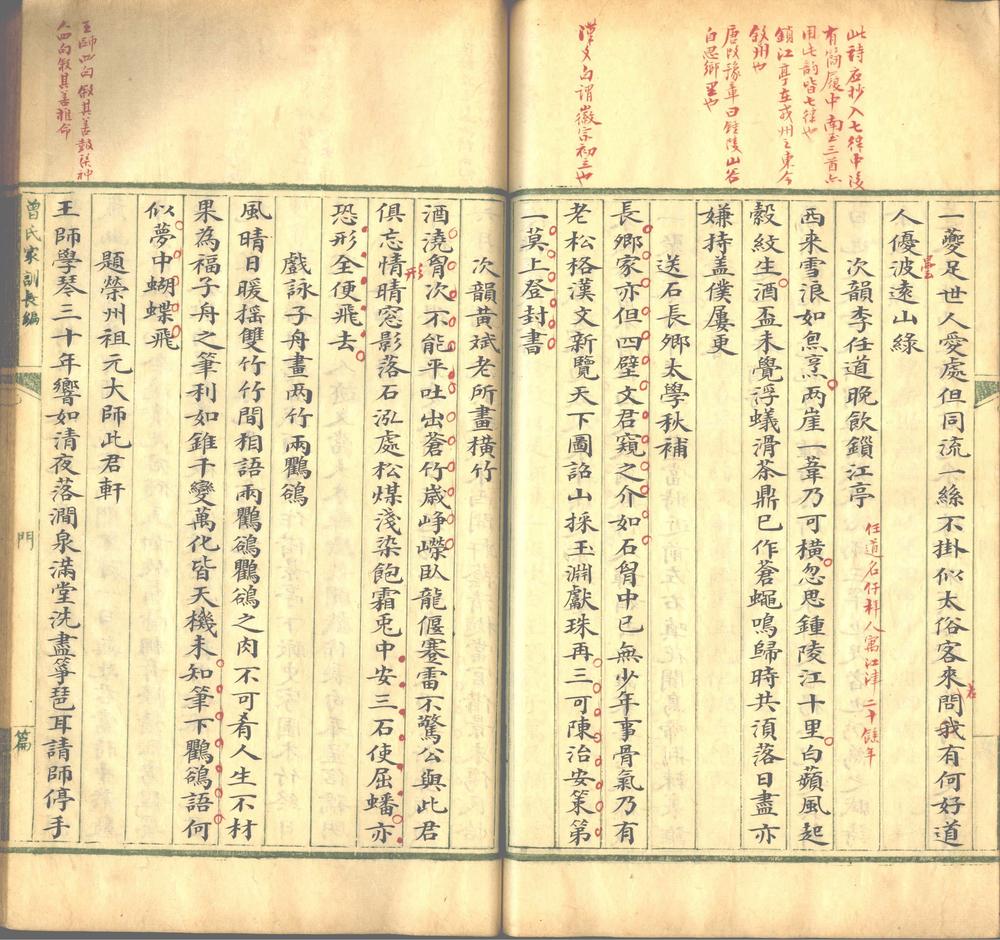 此詩應抄入七律中陵
有箇履中南玉三首亦
用此韵皆七律也
鎖江亭在戎州之東今
敘州也
唐改豫章曰鍾陵山谷
自思鄉里也
漢文句謂徽宗初立也
一夔足世人愛處但同流一絲不掛似太俗客來問我有何好道
人優波遠山緣
次韻李任道晚飲鎖江亭
任道名仔梓人寓江津二十餘年
西來雪浪如𤋎烹兩崖一葦乃可橫忽思鍾陵江十里白蘋風起
縠紋生酒盃未覺浮蟻滑茶鼎已作蒼蠅鳴歸時共須落日盡亦
嫌持蓋僕屢更
送石長卿太學秋補
長卿家亦但四壁文君窺之介如石胷中已無少年事骨氣乃有
老松格漢文新覽天下圖詔山採玉淵獻珠再三可陳治安策第
一莫上登封書
王師四句叙其善鼓琴神
人四句叙其善推命
次韻黃斌老所畫橫竹
酒澆胷次不能平吐出蒼竹歲崢嶸臥龍偃蹇雷不驚公與此君
俱忘情晴窓影落石泓處松煤淺染飽霜兎中安三石使屈蟠亦
形
恐形全便飛去
戲詠子舟畫兩竹兩鸜鵒
風晴日暖摇雙竹竹間相語兩鸜鵒鸜鵒之肉不可肴人生不材
果為福子舟之筆利如錐千變萬化皆天機未知筆下鸜鵒語何
似夢中蝴蝶飛
題榮州祖元大師此君軒
王師學琴三十年響如清夜落澗泉滿堂洗盡箏琶耳請師停手
曾氏家訓長編
門
篇